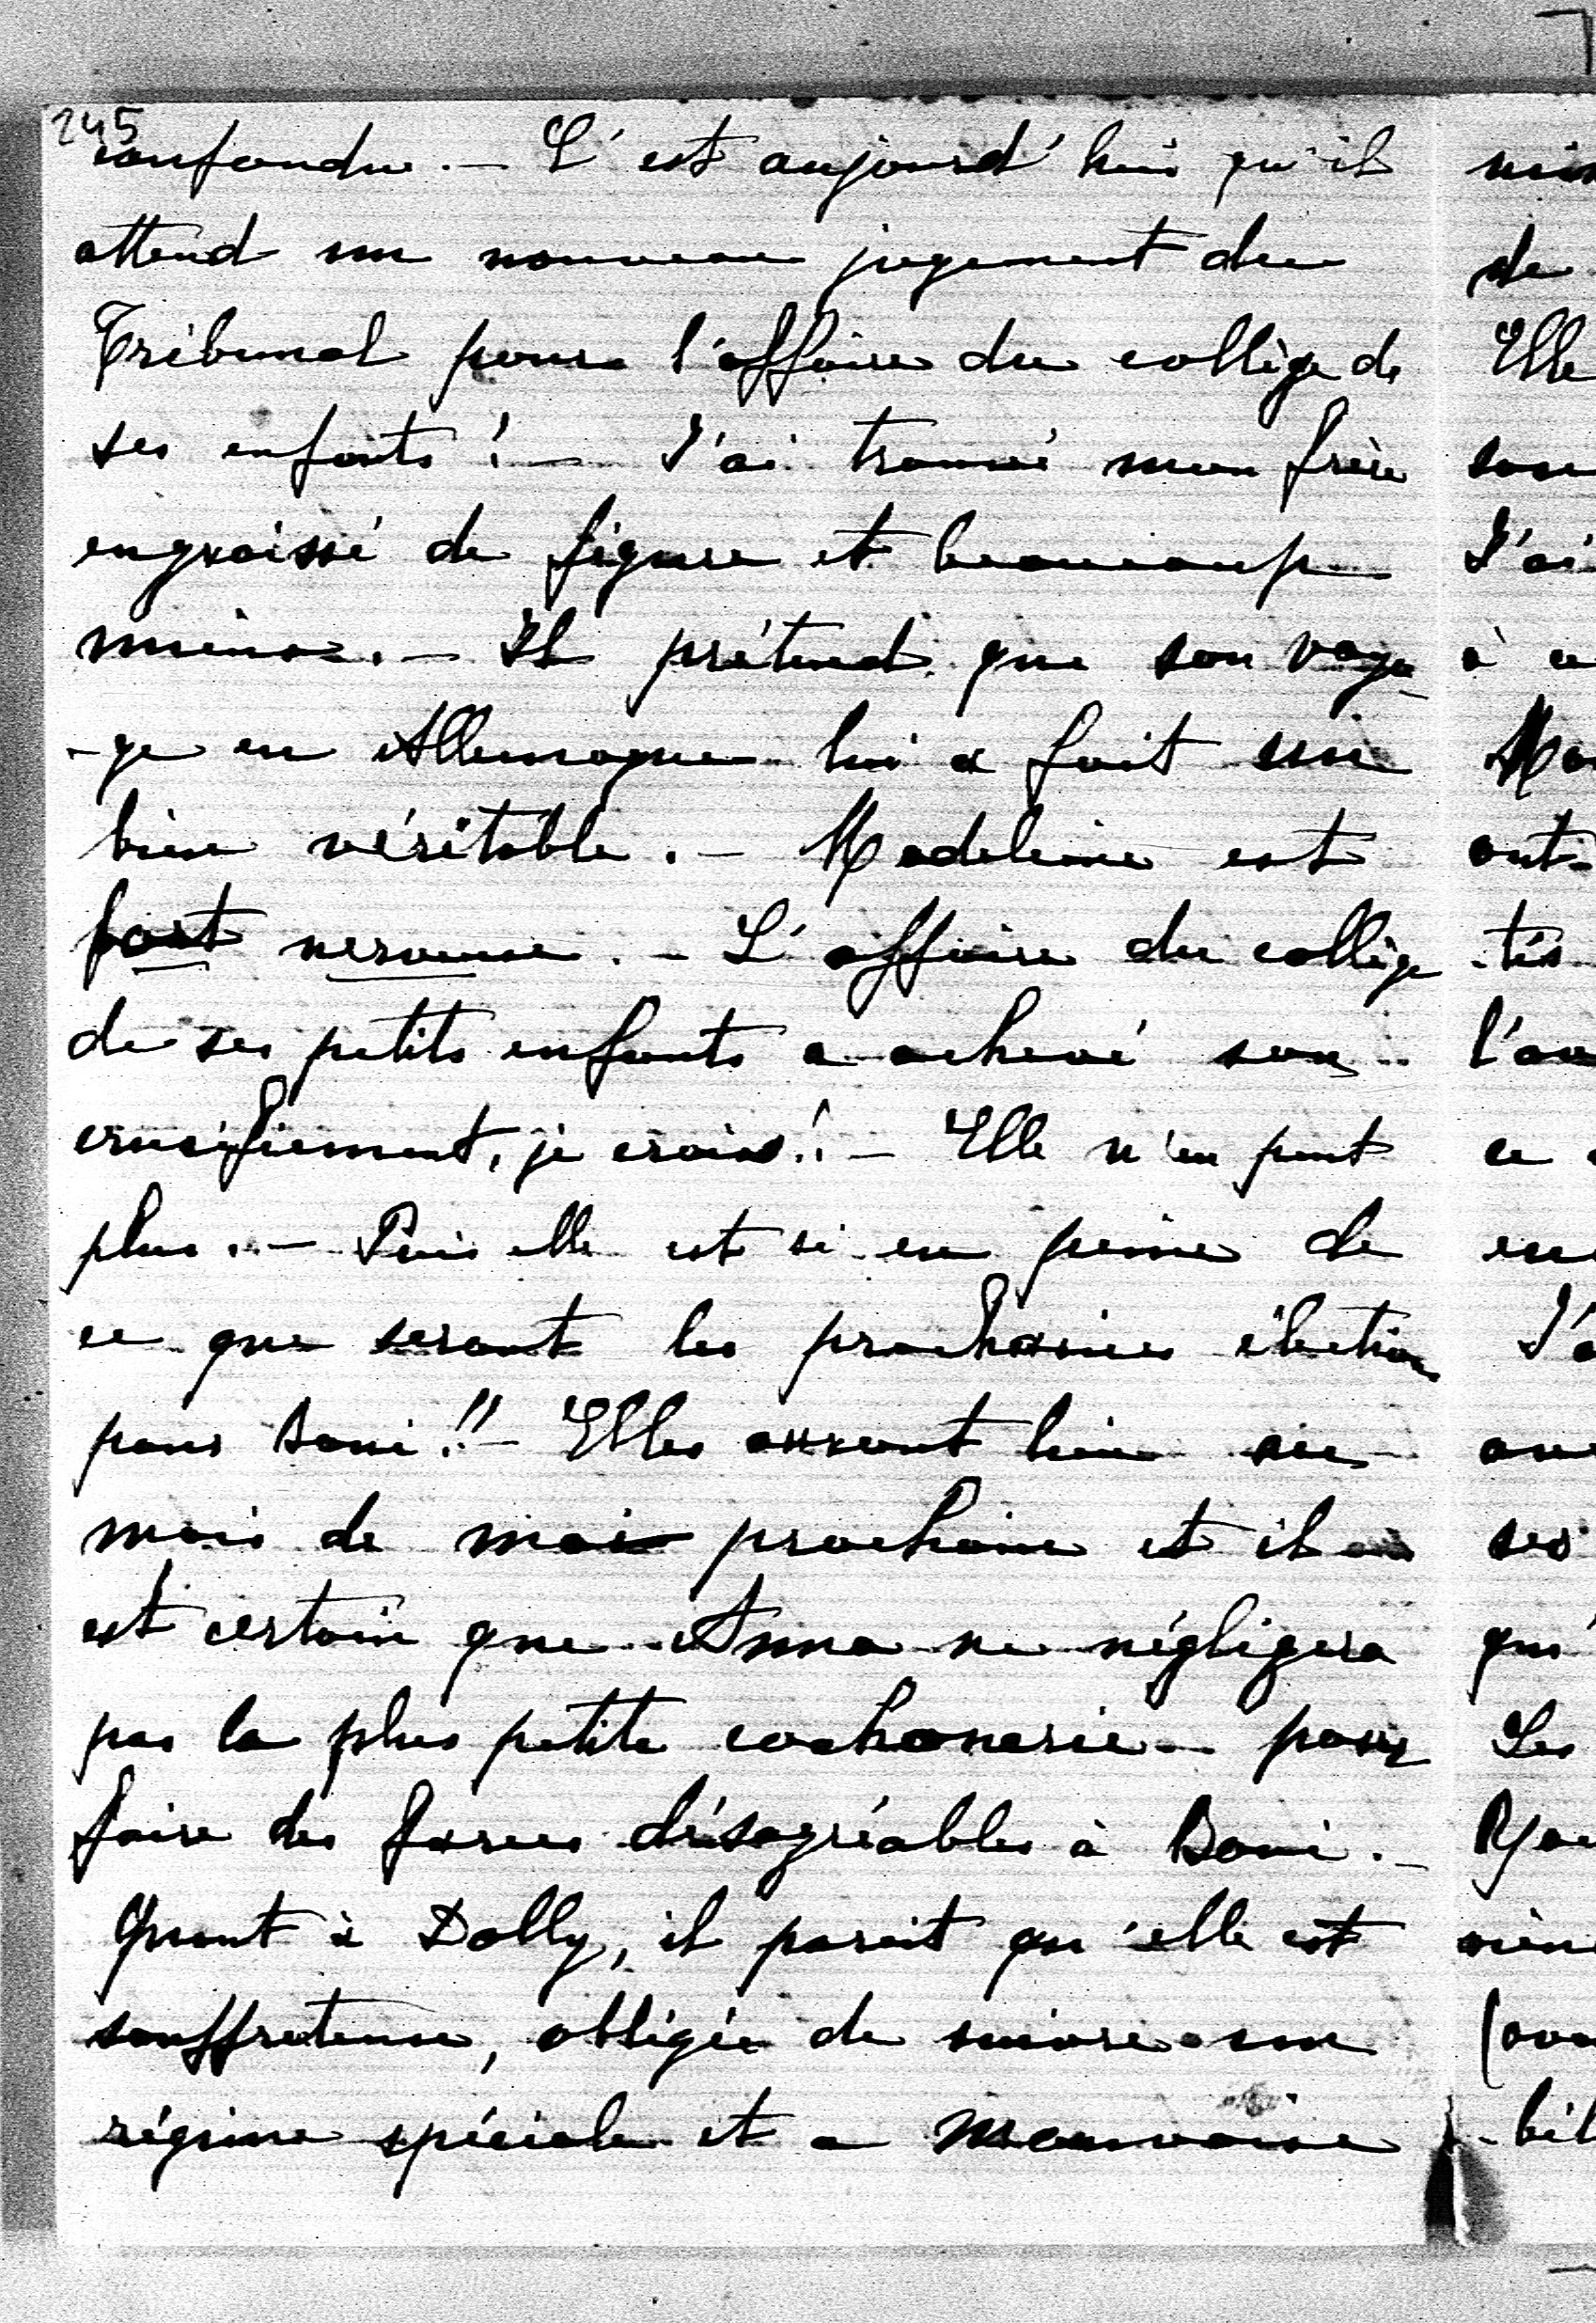 245
confondu. — C'est aujourd'hui qu'il
attend un nouveau jugement du
Tribunal pour l'affaire du collège de
ses enfants ! — J'ai trouvé mon frère
engraissé de figure et beaucoup
mieux. — Il prétend que son voya-
-ge en Allemagne lui a fait un
bien véritable. — Madeleine est
fort nerveuse. — L'affaire du collège
de ses petits enfants a achevé son
crucifiement, je crois ! — Elle n'en peut
plus. — Puis elle est si en peine de
ce que seront les prochaines élections
pour Boni !! — Elles auront lieu au
mois de mai prochain et il
est certain que Anna ne négligera
pas la plus petite cochonerie pour
faire des farces désagréables à Boni. —
Quant à Dolly, il parait qu'elle est
souffreteuse, obligée de suivre un
régime spéciale et a mauvaise
de
Elle
J'ai
à ce
ont-
-tés
ce
J'a
ses
qu'
Les